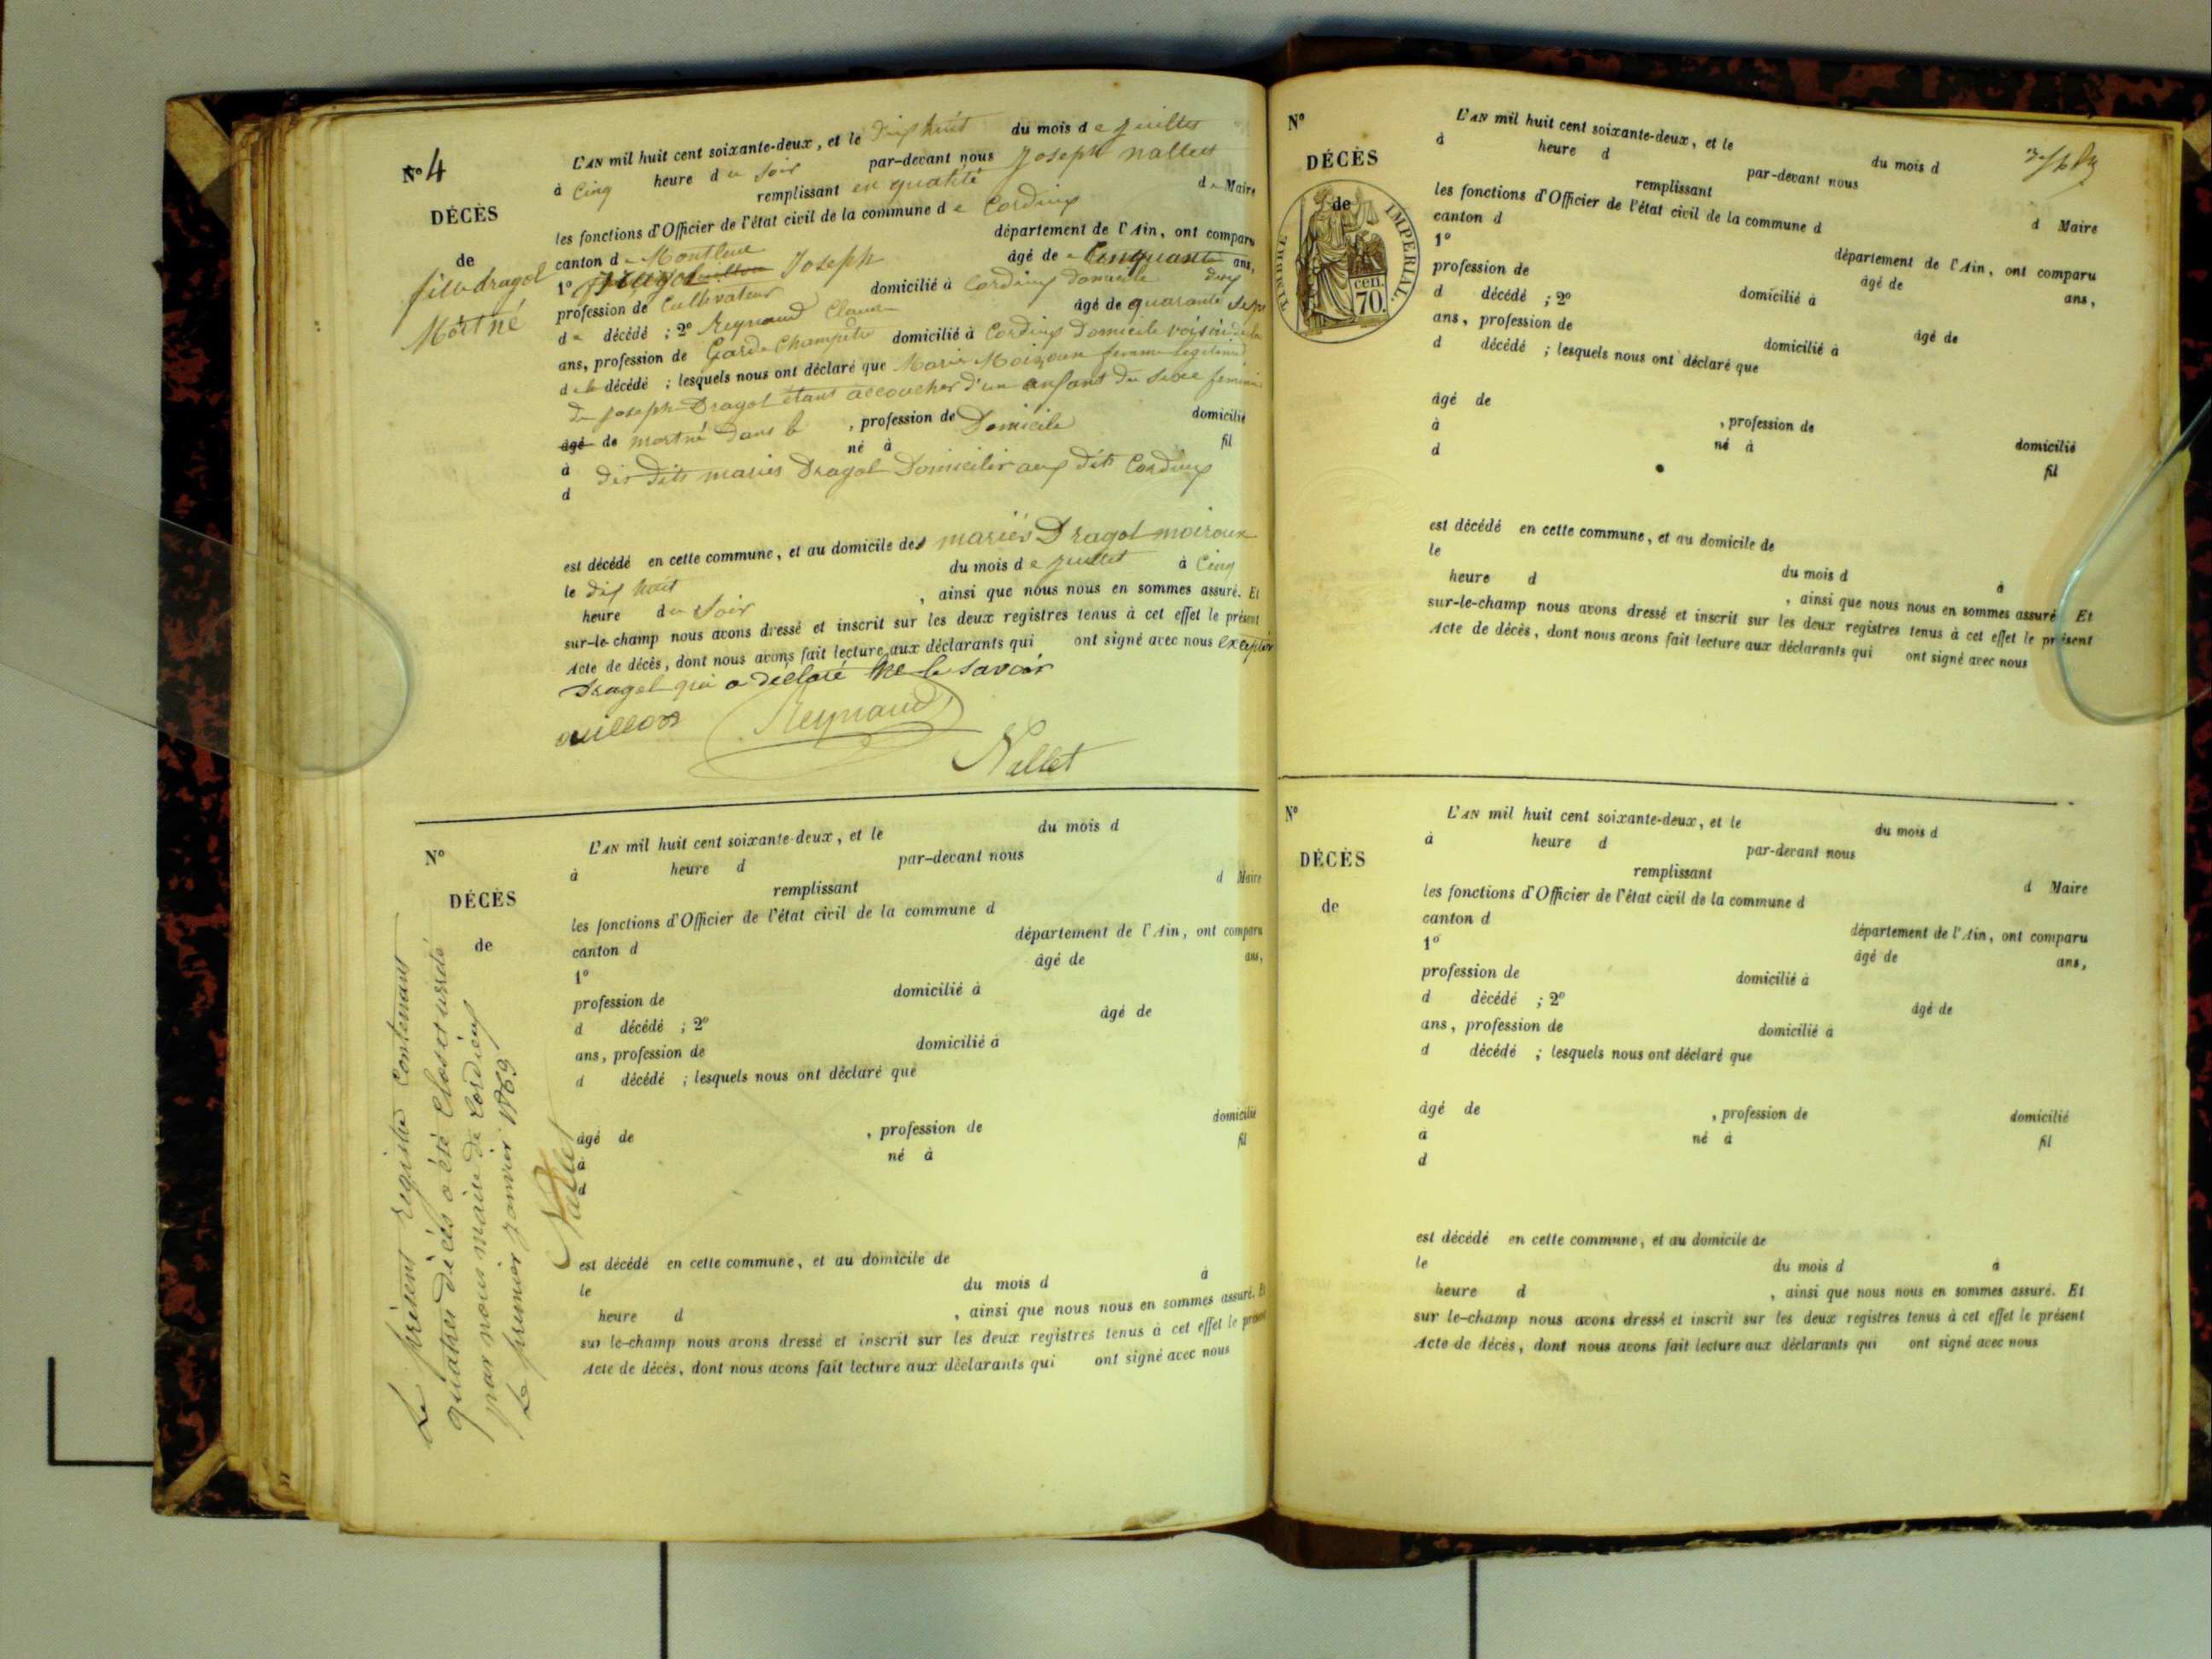 N° 4
DÉCÈS
de
fille dragol
Mort né
L'AN mil huit cent soixante-deux, et le dix huit du mois de juillet
à Cinq heure du Soir par-devant nous Joseph nallet
remplissant en qualité de Maire
les fonctions d'Officier de l'état civil de la commune de Cordieux
canton de Montluel département de l'Ain, ont comparu
1° Dragol Joseph âgé de Cinquante ans,
profession de Cultivateur domicilié à Cordieux domicile
d décédé ; 2° Reynaud Claude âgé de quarante Sept
ans, profession de Garde Champetre domicilié à Cordieux Domicile voisin de la
de la décédé ; lesquels nous ont déclaré que Marie Moiroux femme legitime
de Joseph Dragol étant accoucher d'un enfant du Sexe feminin
âgé de mortné dans le , profession de Domicile domicilié
à né à fil
d des dits mariés Dragol Domicilier aux dits Cordieux
est décédé en cette commune, et au domicile des mariés Dragol moiroux
le dix huit du mois de juillet à Cinq
heure du Soir , ainsi que nous nous en sommes assuré. Et
sur-le-champ nous avons dressé et inscrit sur les deux registres tenus à cet effet le présent
Acte de décès, dont nous avons fait lecture aux déclarants qui ont signé avec nous
Dragol qui a déclaré ne le savoir
Reynaud
Nallet
N°
DÉCÈS
de
L'AN mil huit cent soixante-deux, et le du mois d
à heure d par-devant nous
remplissant d Maire
les fonctions d'Officier de l'état civil de la commune d
canton d département de l'Ain, ont comparu
1° âgé de ans,
profession de domicilié à
d décédé ; 2° âgé de
ans, profession de domicilié à
d décédé ; lesquels nous ont déclaré que
âgé de , profession de domicilié
à né à fil
d
est décédé en cette commune, et au domicile de
le du mois d à
heure d , ainsi que nous nous en sommes assuré. Et
sur le-champ nous avons dressé et inscrit sur les deux registres tenus à cet effet le présent
Acte de décès, dont nous avons fait lecture aux déclarants qui ont signé avec nous
Le présent registre Contenant
quatres décès a été Clos et arrêté
par nous maire de Cordieux
Le premier janvier 1863
Nallet
N°
DÉCÈS
de
TIMBRE IMPÉRIAL.
70.
cen.
L'AN mil huit cent soixante-deux, et le du mois d
à heure d par-devant nous
remplissant d Maire
les fonctions d'Officier de l'état civil de la commune d
canton d département de l'Ain, ont comparu
1° âgé de ans,
profession de domicilié à
d décédé ; 2° âgé de
ans, profession de domicilié à
d décédé ; lesquels nous ont déclaré que
âgé de , profession de domicilié
à né à fil
d
est décédé en cette commune, et au domicile de
le du mois d à
heure d , ainsi que nous nous en sommes assuré Et
sur-le-champ nous avons dressé et inscrit sur les deux registres tenus à cet effet le présent
Acte de décès, dont nous avons fait lecture aux déclarants qui ont signé avec nous
N°
DÉCÈS
de
L'AN mil huit cent soixante-deux, et le du mois d
à heure d par-devant nous
remplissant d Maire
les fonctions d'Officier de l'état civil de la commune d
canton d département de l'Ain, ont comparu
1° âgé de ans,
profession de domicilié à
d décédé ; 2° âgé de
ans, profession de domicilié à
d décédé ; lesquels nous ont déclaré que
âgé de , profession de domicilié
à né à fil
d
est décédé en cette commune, et au domicile de
le du mois d à
heure d , ainsi que nous nous en sommes assuré. Et
sur le-champ nous avons dressé et inscrit sur les deux registres tenus à cet effet le présent
Acte de décès, dont nous avons fait lecture aux déclarants qui ont signé avec nous